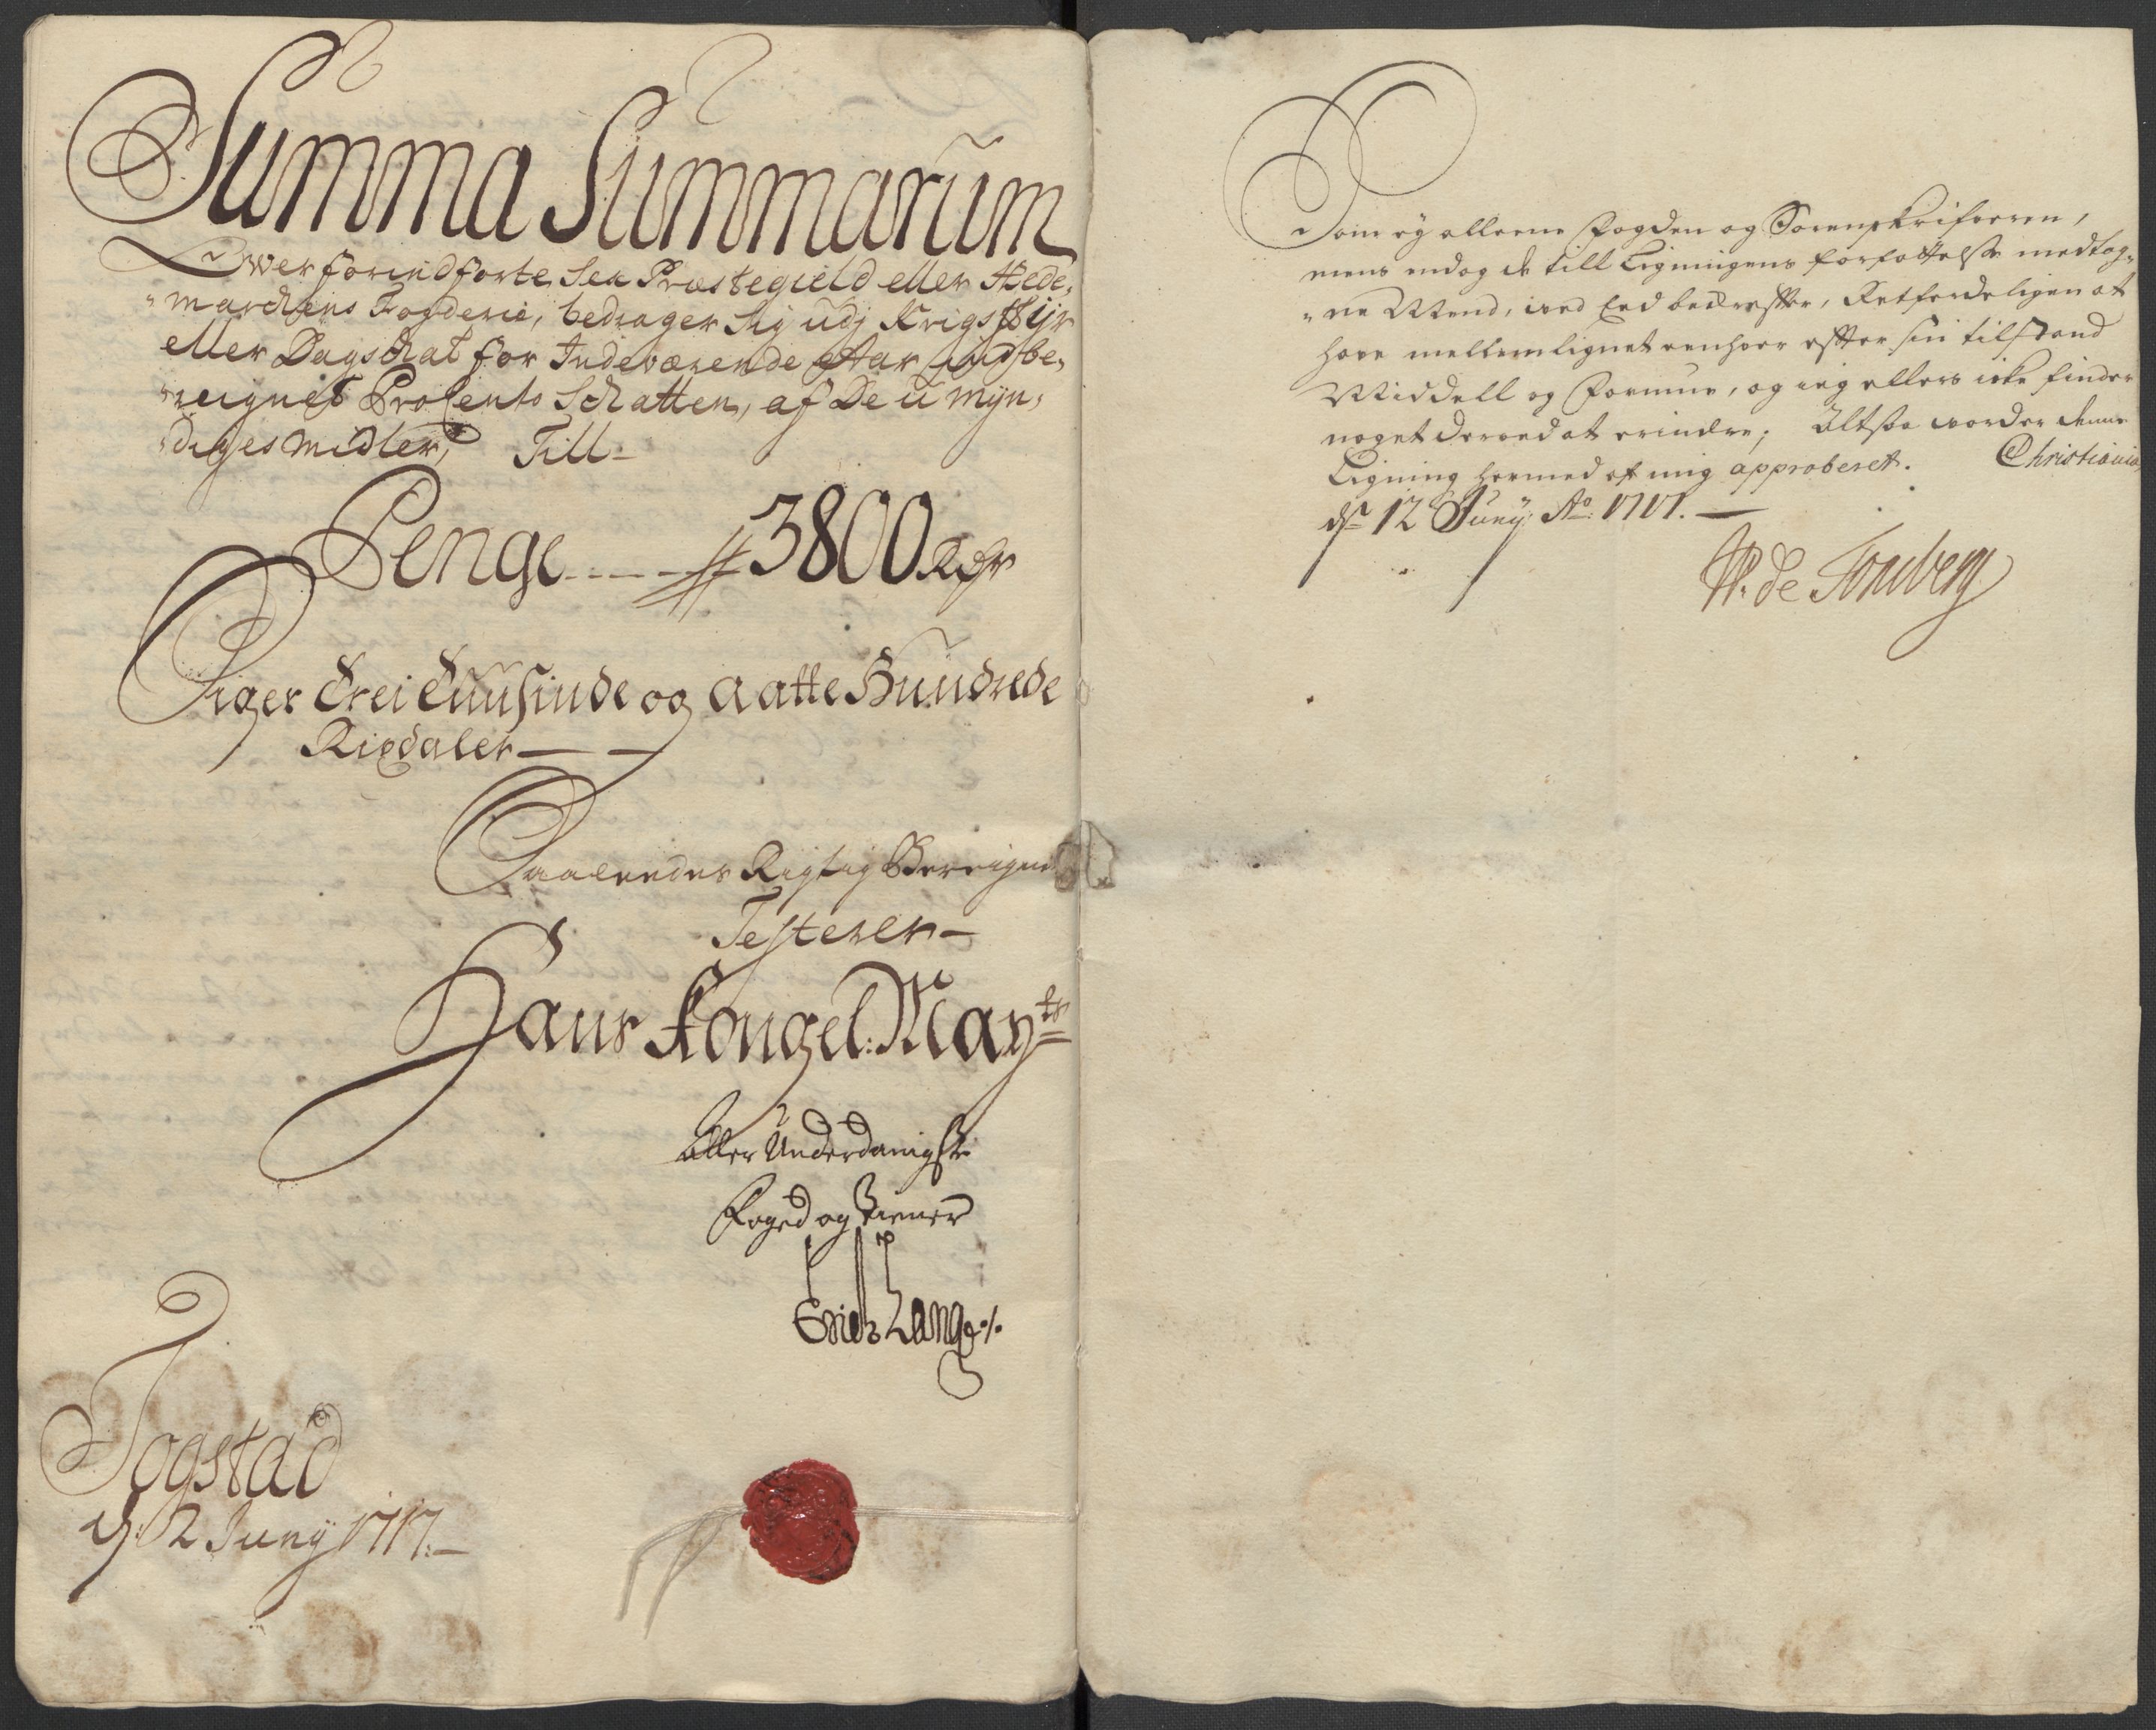 Summa Summarum
Over forindførte Sex Præstegield eller Hede„
„marchens Fogderie, bedrager Sig udj Krigs Styr
eller Dagschat for Indeværende Aar ind be„
„reignet ProCento Schatten, af De u myn„
„diges Midler, Till-
Penge ---- # 3800 Rdr
Siger Trei Tuusinde og Aatte Hundrede
Rixdaler — —
Saaledes Rigtig Bereignet
Testerer -
Hans Kongel: Mayts
Aller Underdanigste
Foged og Tiener
Erich Lange
Togstad
d: 2 Juny 1717. —
Som ey alleene Fogden og Sorenskrifveren,
mens endog de till Ligningens forfattelse medtag„
„ne Mend, ved Eed bekrefter, Retferdeligen at
have mellemlignet eenhver efter sin tilstand
Middell og Formue, og ieg ellers icke finder
noget derved at erindre; Altsaa vorder denne
Ligning hermed af mig approberet. Christiania
dn 12 Juny Ao: 1717. —
W. de Tonsberg